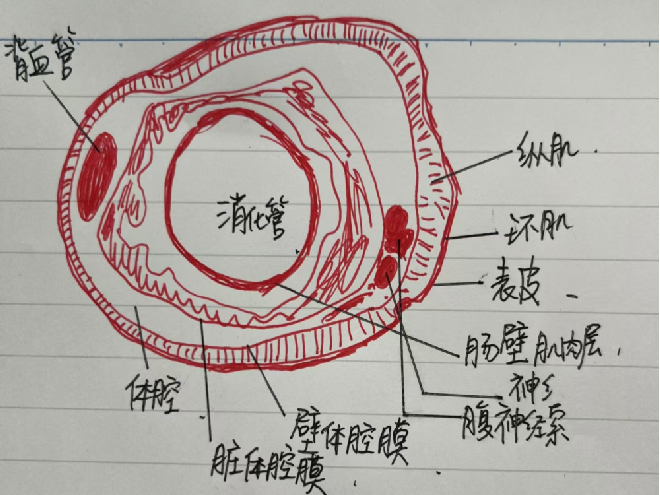 背血管
消化管
纵肌
环肌
表皮
肠壁肌肉层
神经
腹神经索
体腔
壁体腔膜
脏体腔膜